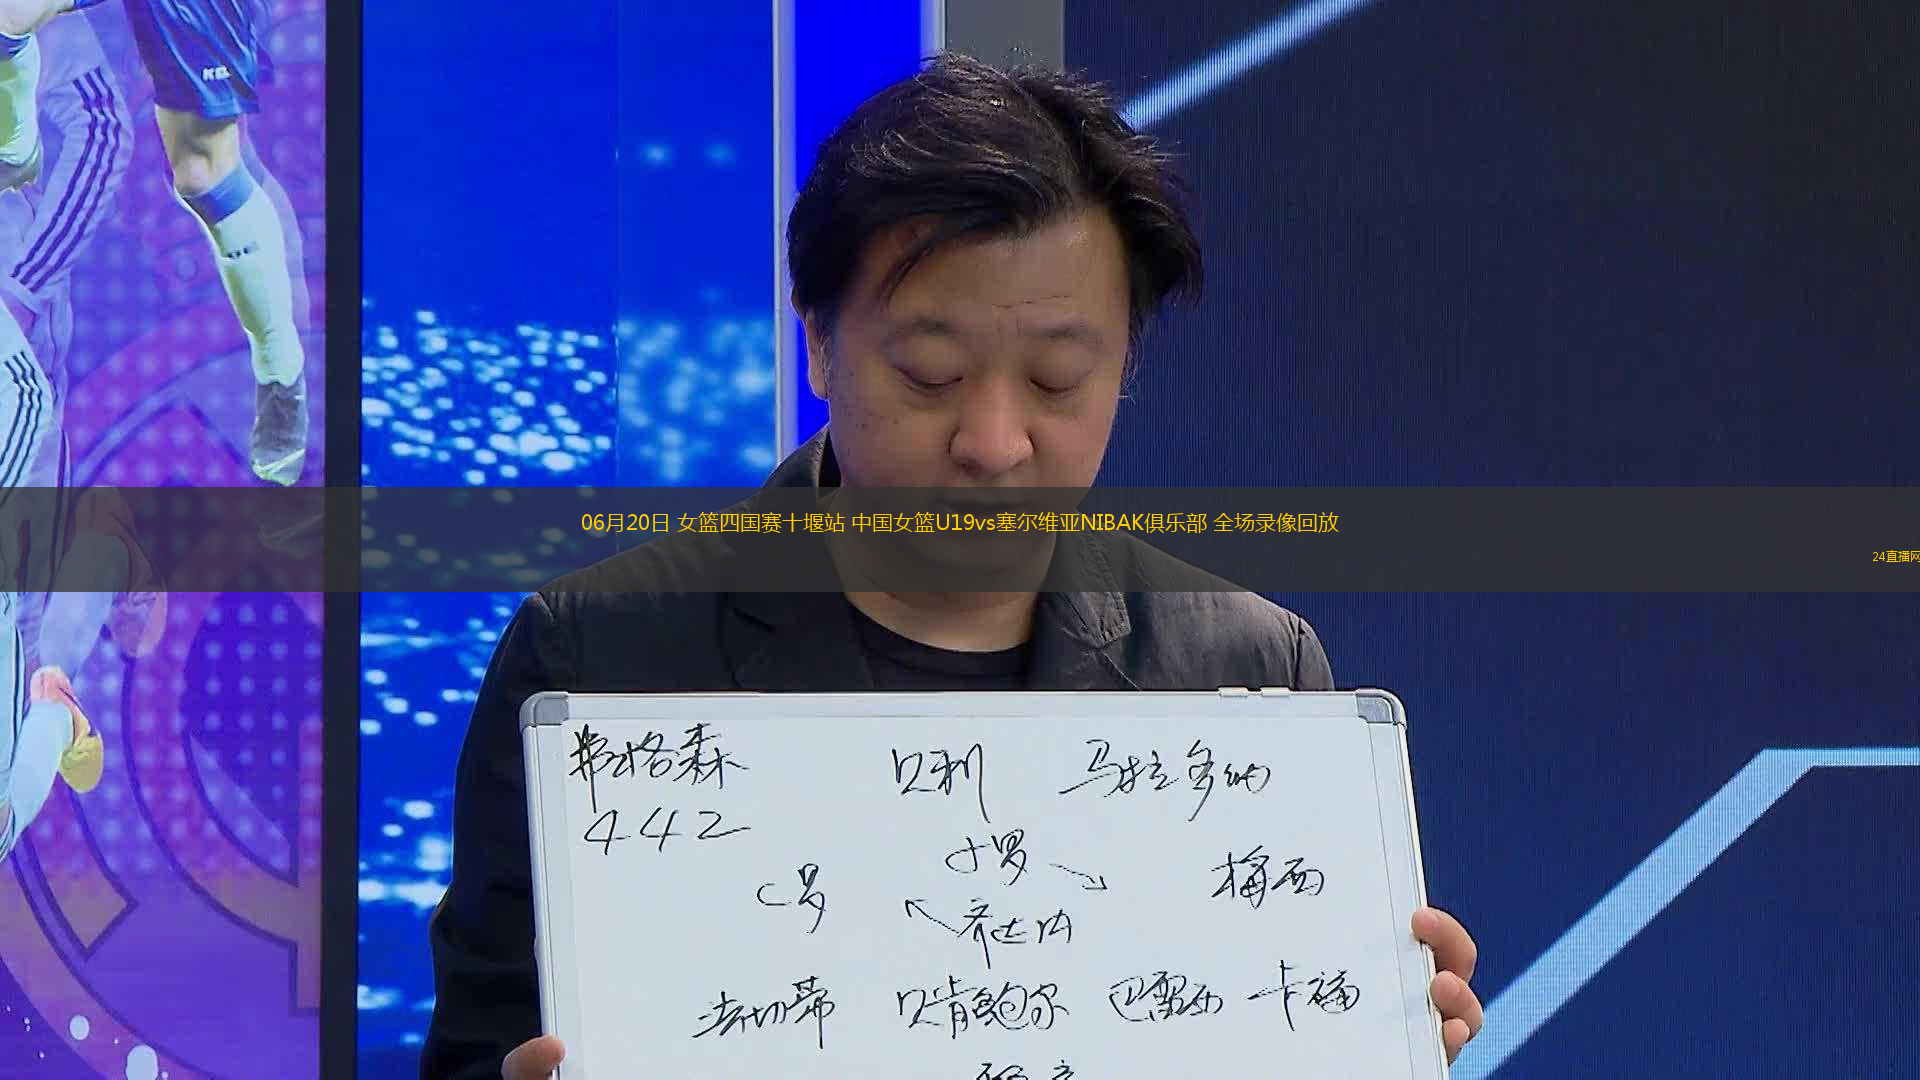 06月20日 女篮四国赛十堰站 中国女篮U19vs塞尔维亚NIBAK俱乐部 全场录像回放
24直播网
弗格森 贝利 马拉多纳
442
小罗
C罗 梅西
齐达内
法切蒂 贝肯鲍尔 巴雷西 卡福